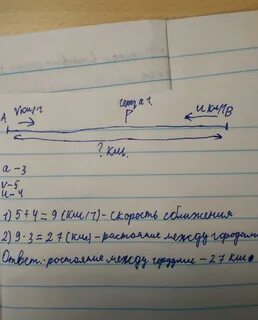 v км/ч
через a ч.
u км/ч
A
B
? км.
a - 3
v - 5
u - 4
1) 5 + 4 = 9 (км/ч) - скорость сближения
2) 9 · 3 = 27 (км) - растояние между городами
Ответ: растояние между городами - 27 км.